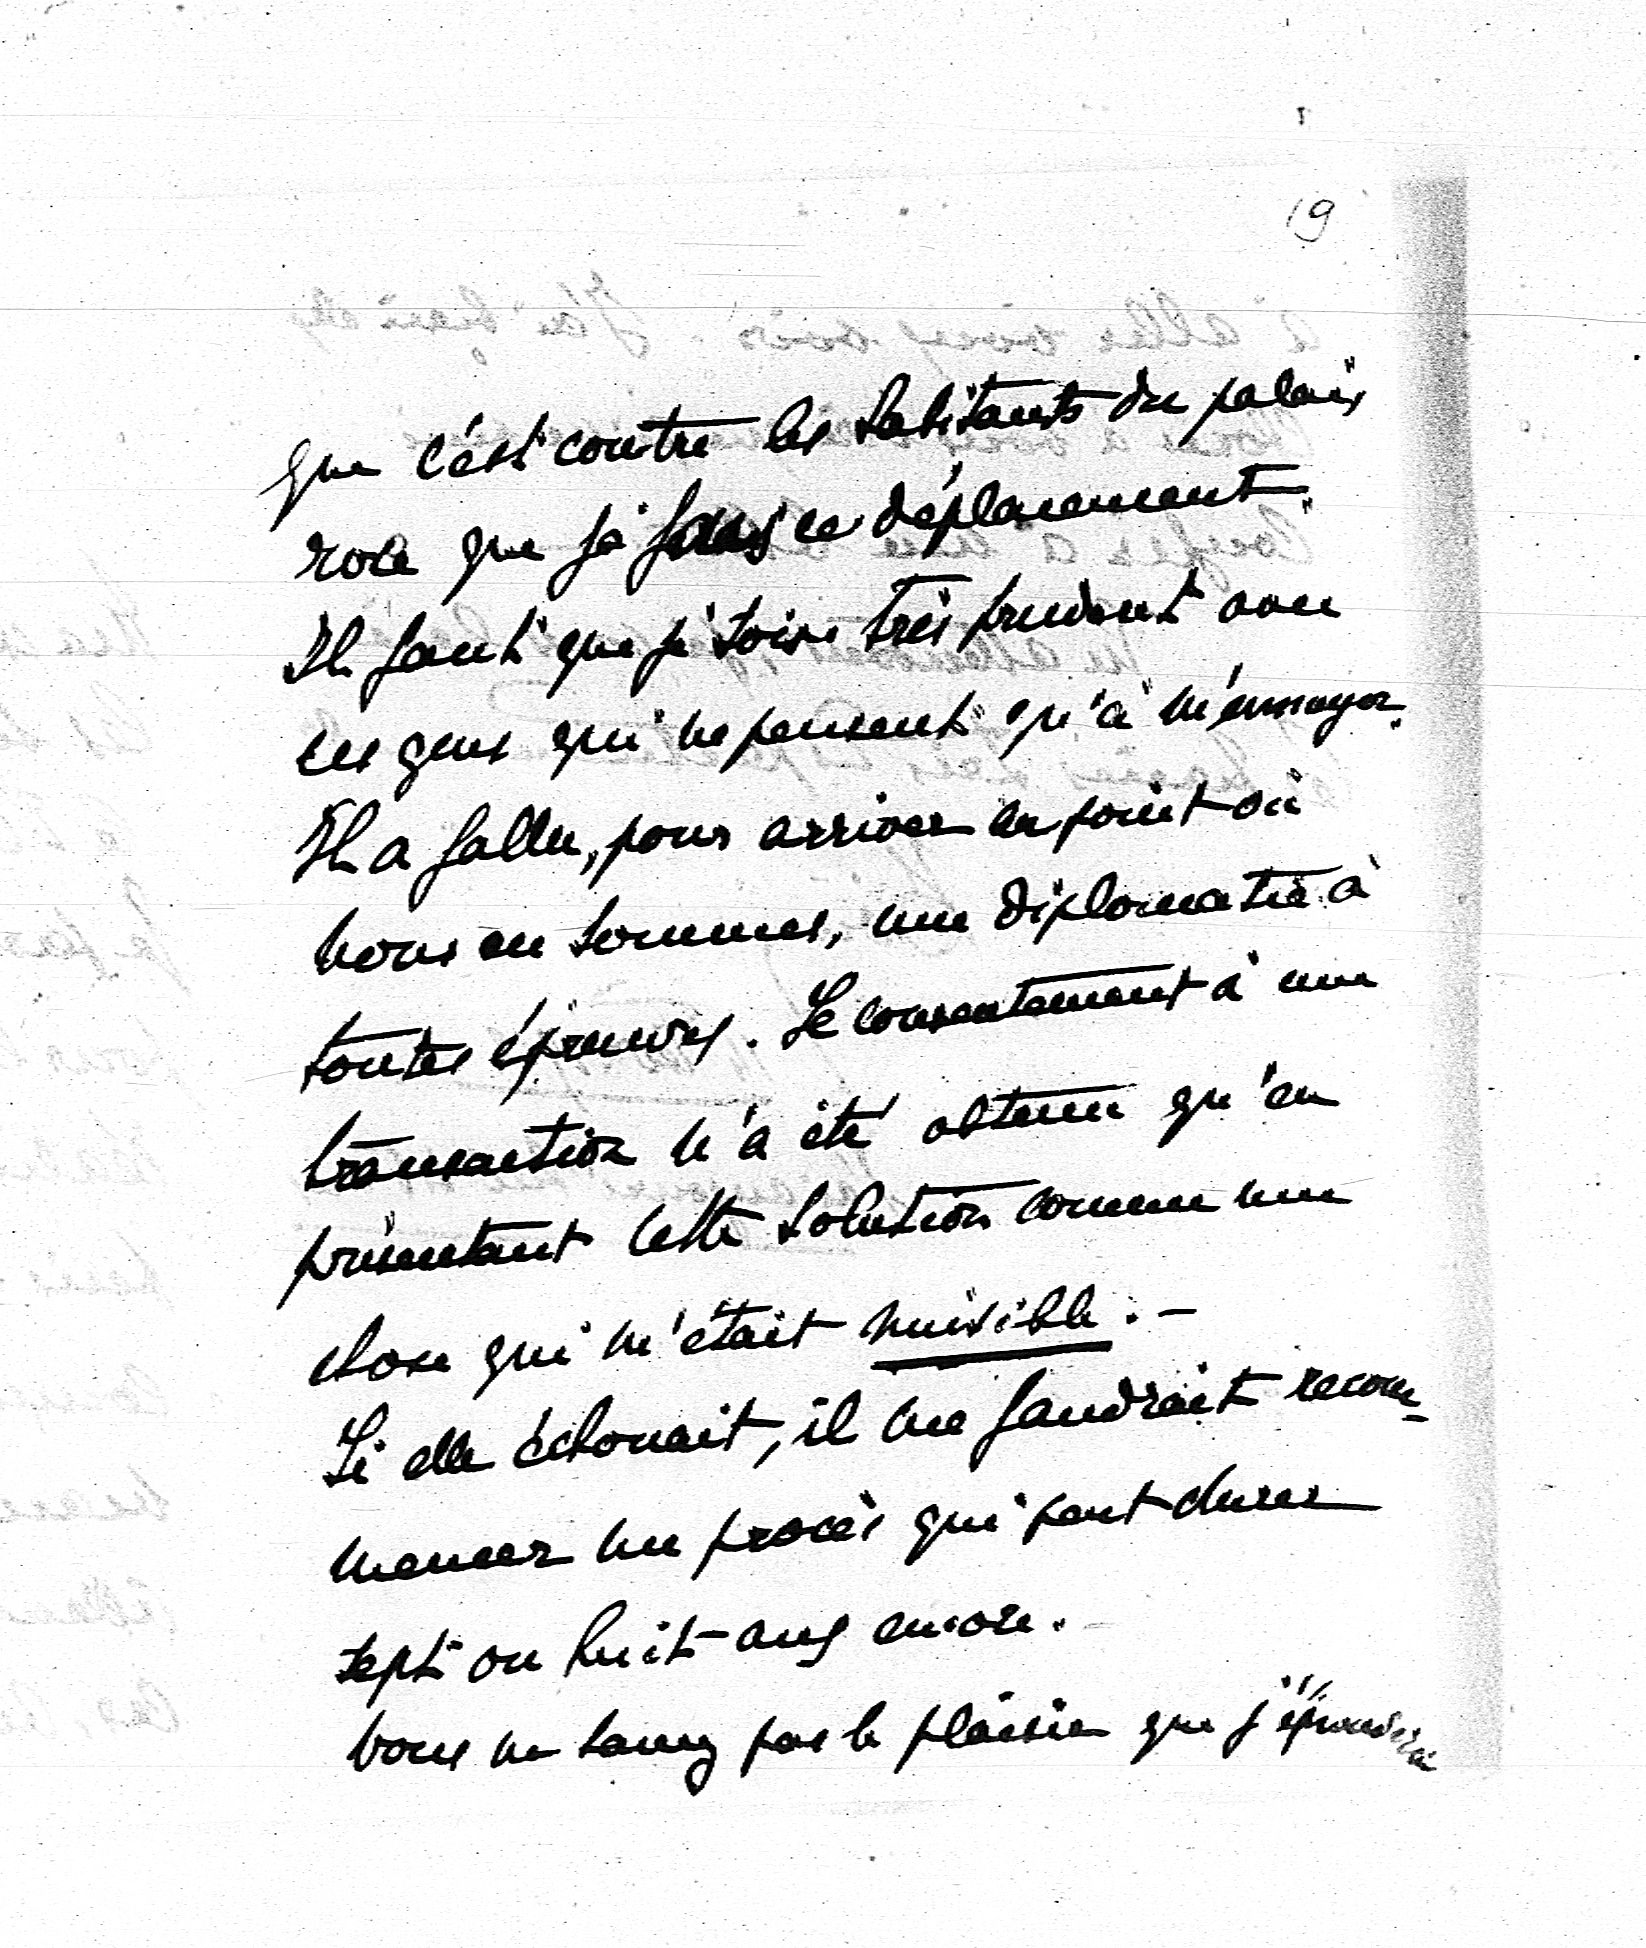 19
que c'est contre les habitants du palais
rose que je fais ce déplacement.
Il faut que je sois très prudent avec
ces gens qui ne pensent qu'à m'ennuyer.
Il a fallu, pour arriver au point où
nous en sommes, une diplomatie à
toutes épreuves. Le consentement à une
transaction n'a été obtenu qu'en
présentant cette solution comme une
chose qui m'était nuisible. -
Si elle échouait, il me faudrait recom-
mencer un procès qui peut durer
sept ou huit ans encore.
Vous ne savez pas le plaisir que j'éprouverai